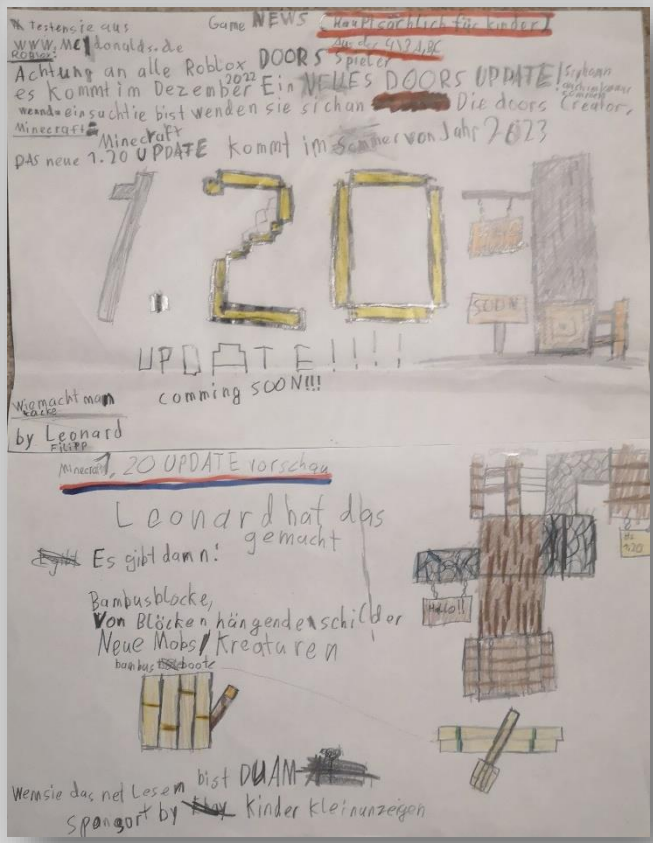 Testen sie aus
Game NEWS (Hauptsächlich für kinder)
WWW.MC1donalds.de
Roblox:
Achtung an alle Roblox DOORS Spieler
es kommt im Dezember 2022 Ein NEUES DOORS UPDATE!
bist wenden sie sich an Die doors Creator,
Minecraft
Minecraft
DAS neue 1.20 UPDATE kommt im Sommer von Jahr 2023
1.20
SOON
UPDATE!!!!
comming SOON!!!
Wie macht man
kacke
by Leonard
FiliPP
Minecraft 1.20 UPDATE vorschau
Leonard hat das
gemacht
Es gibt dann:
Bambusblocke,
Von Blöcken hängendenschilder
Neue Mobs/Kreaturen
bambus boote
Hello!!
1.20
Wemsie das net Lesem bist DUAM
Sponsort by Kinder kleinanzeigen